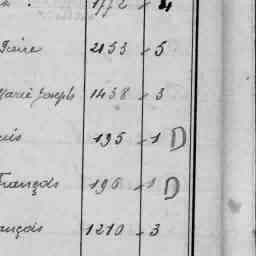 1772 - 4
Pierre 2153 - 5
Marie Joseph 1438 - 3
195 - 1 D
François 196 - 1 D
ançois 1210 - 3